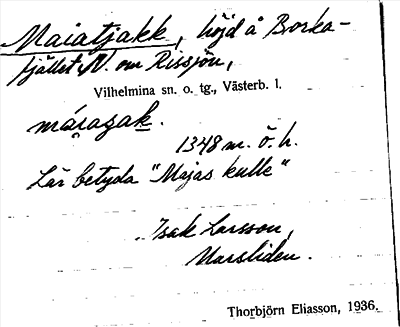 Maiatjåkk, höjd å Borka-
fjället N. om Rissjön,
Vilhelmina sn. o. tg., Västerb. l.
1348 m. ö. h.
Lär betyda "Majas kulle"
Isak Larsson,
Marsliden.
Thorbjörn Eliasson, 1936.